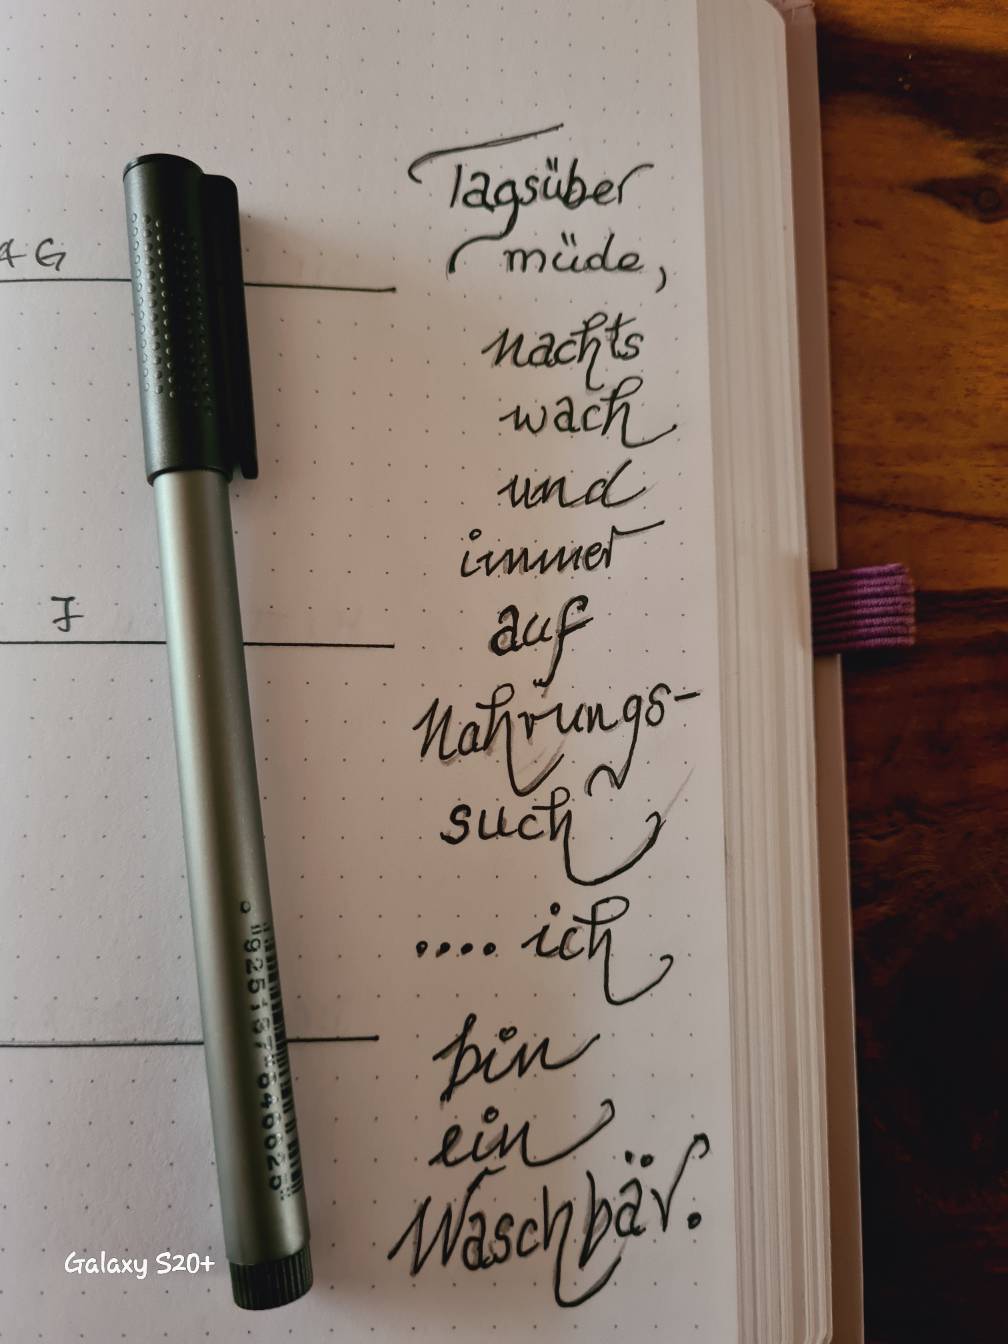 Tagsüber
müde,
nachts
wach
und
immer
auf
Nahrungs-
such
.... ich
bin
ein
Waschbär.
AG
F
Galaxy S20+